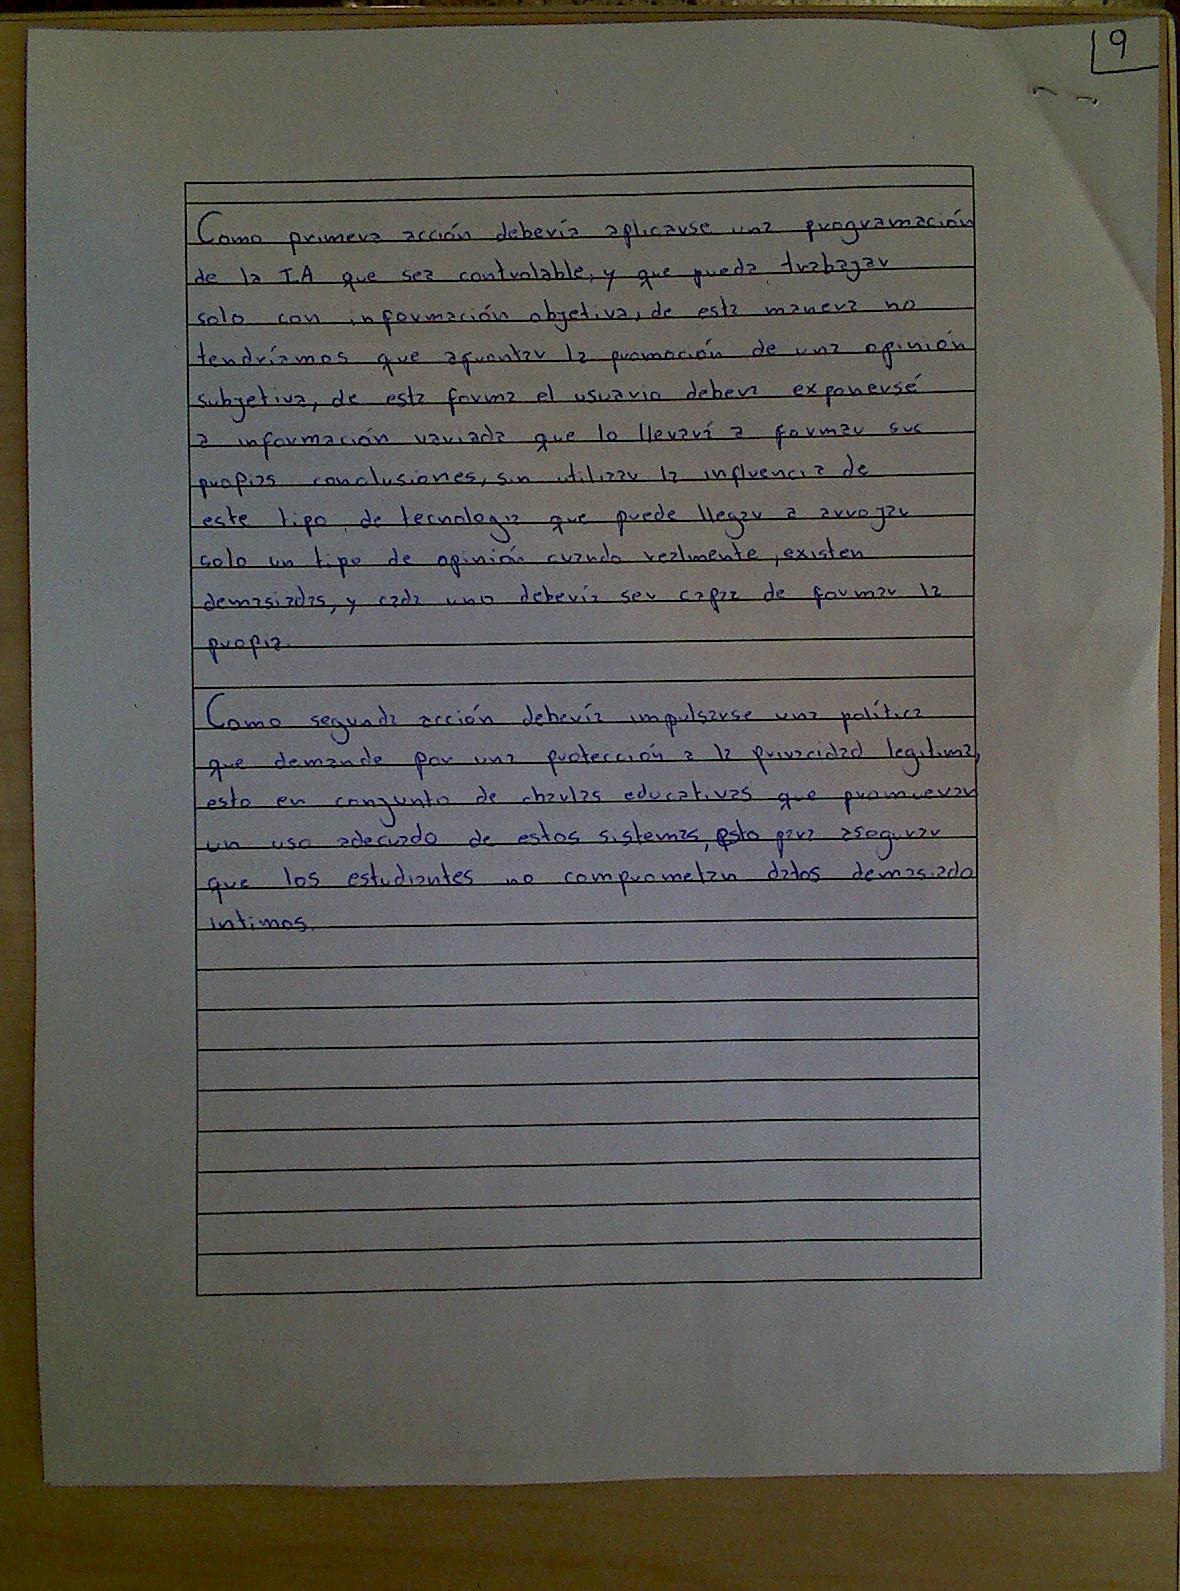 9
Como primera acción debería aplicarse una programación
de la IA que sea controlable, y que pueda trabajar
solo con información objetiva, de esta manera no
tendríamos que aguantar la promoción de una opinión
subjetiva, de esta forma el usuario debera exponerse
a información variada que lo llevará a formar sus
propias conclusiones, sin utilizar la influencia de
este tipo de tecnologia que puede llegar a arrojar
solo un tipo de opinión cuando realmente, existen
demasiadas, y cada uno debería ser capaz de formar la
propia.
Como segunda acción debería impulsarse una política
que demande por una protección a la privacidad legitima,
esto en conjunto de charlas educativas que promuevan
un uso adecuado de estos sistemas, esto para asegurar
que los estudiantes no comprometan datos demasiado
intimos.